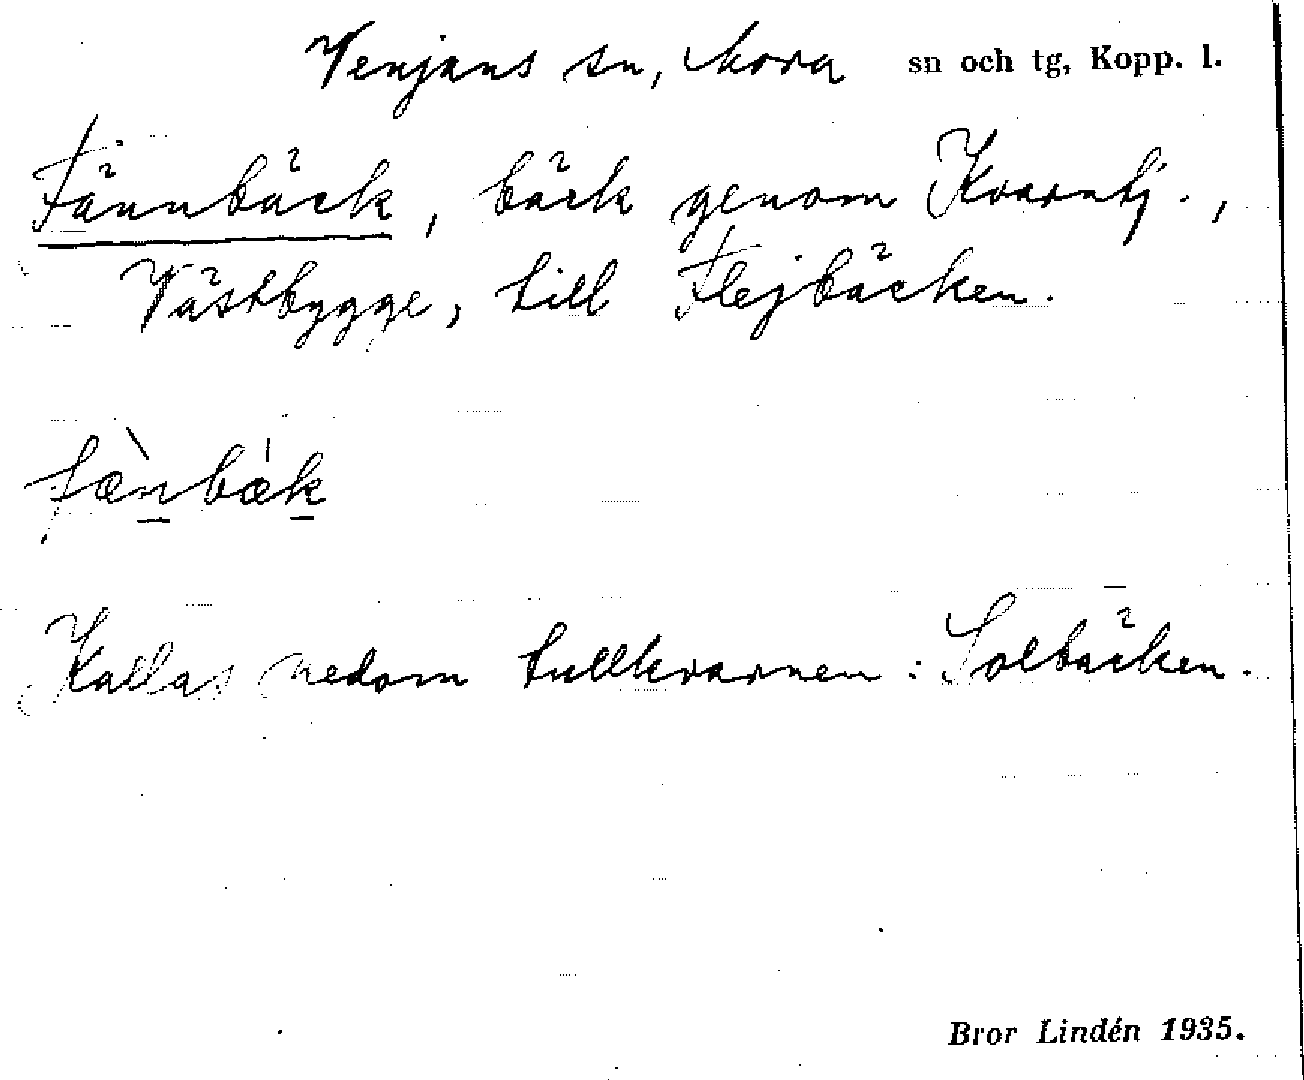 Venjans sn, Mora sn och tg, Kopp. l.
Fännbäck, bäck genom Kvarntj.,
Västbygge, till Flejbäcken.
fæ̀n̲bæ̀k̲
Kallas nedom tullkvarnen: Solbäcken.
Bror Lindén 1935.